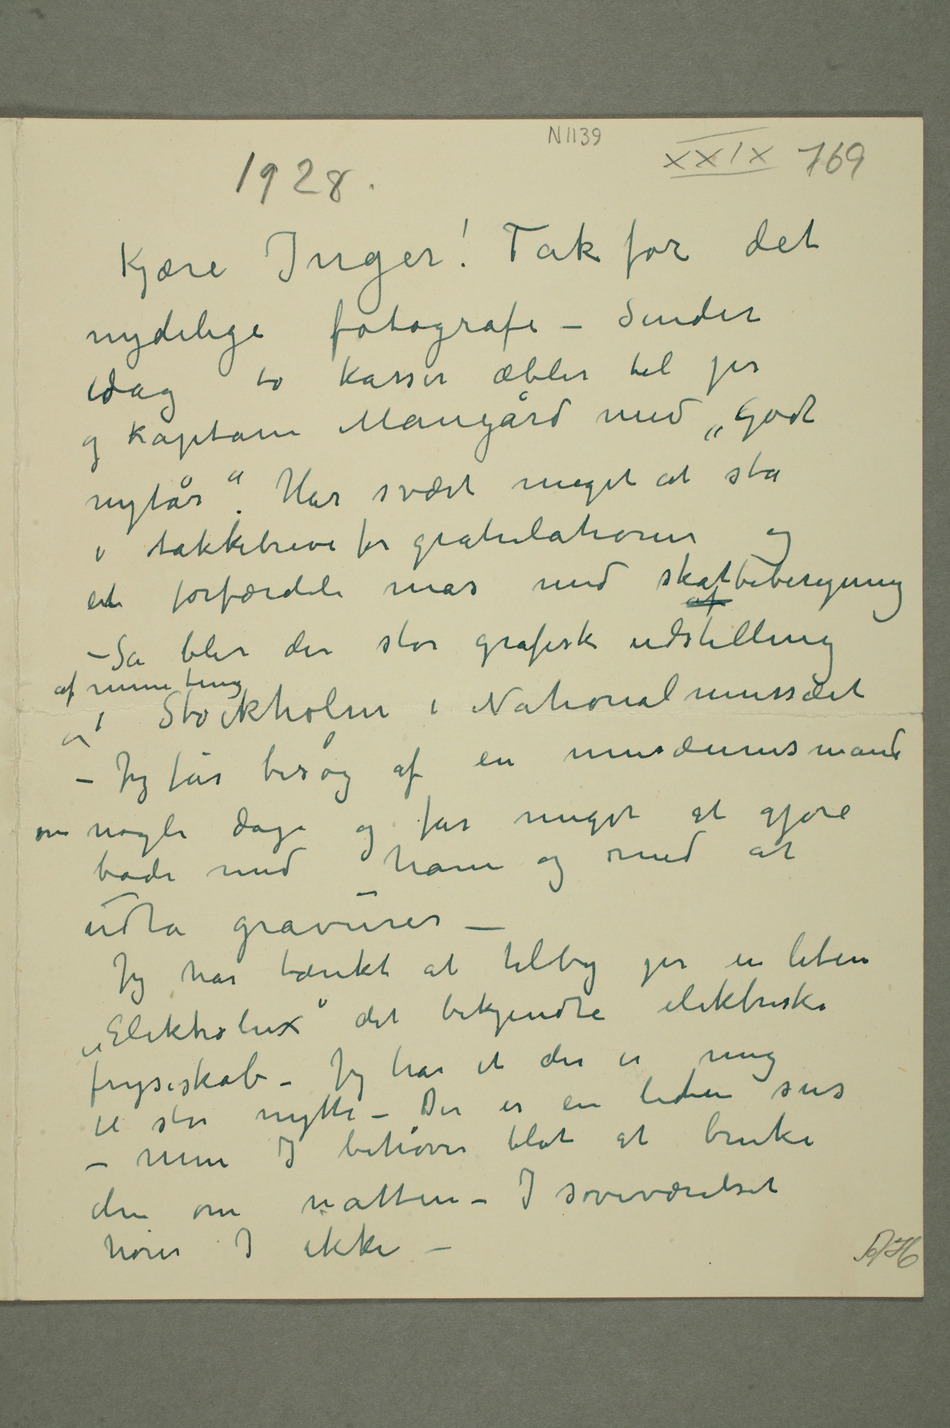 N1139
XXIX 769
1928.
Kjære Inger! Tak for det
nydelige fotografi – Sender
idag to kasser æbler til jer
og Kaptain Mangård med „Godt
nytår“. Har svært meget at stå
i takkebreve for gratulationer og
et forfærdeli mas med skatbeberegning
– Så blir der stor grafisk udstilling
af mine ting
i Stockholm i Nationalmussæet
– Jeg får besøg af en musæumsmand
om nogle dage og får meget at gjøre
både med ham og med at
udta gravurer –
Jeg har tænkt at tilby jer en liten
„Elektrolux“ det bekjendte elektriske
fryseskab – Jeg har et der er mig
til stor nytte – Der er en liden sus
– men I behøver blot at bruke
den om natten – I soveværelset
hører I ikke –